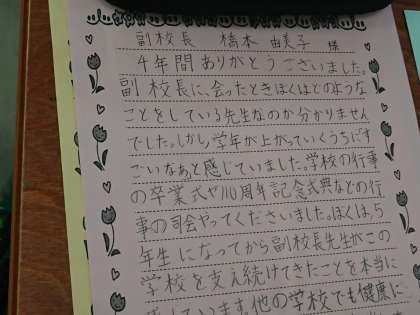 副校長 橋本 由美子 様
4年間ありがとうございました。
副校長に、会ったときぼくはどのような
ことをしている先生なのか分かりません
でした。しかし、学年が上がっていくうちにす
ごいなあと感じていました。学校の行事
の卒業式や110周年記念式典などの行
事の司会やってくださいました。ぼくは、5
年生になってから副校長先生がこの
学校を支え続けてきたことを本当に
います。他の学校でも健康に